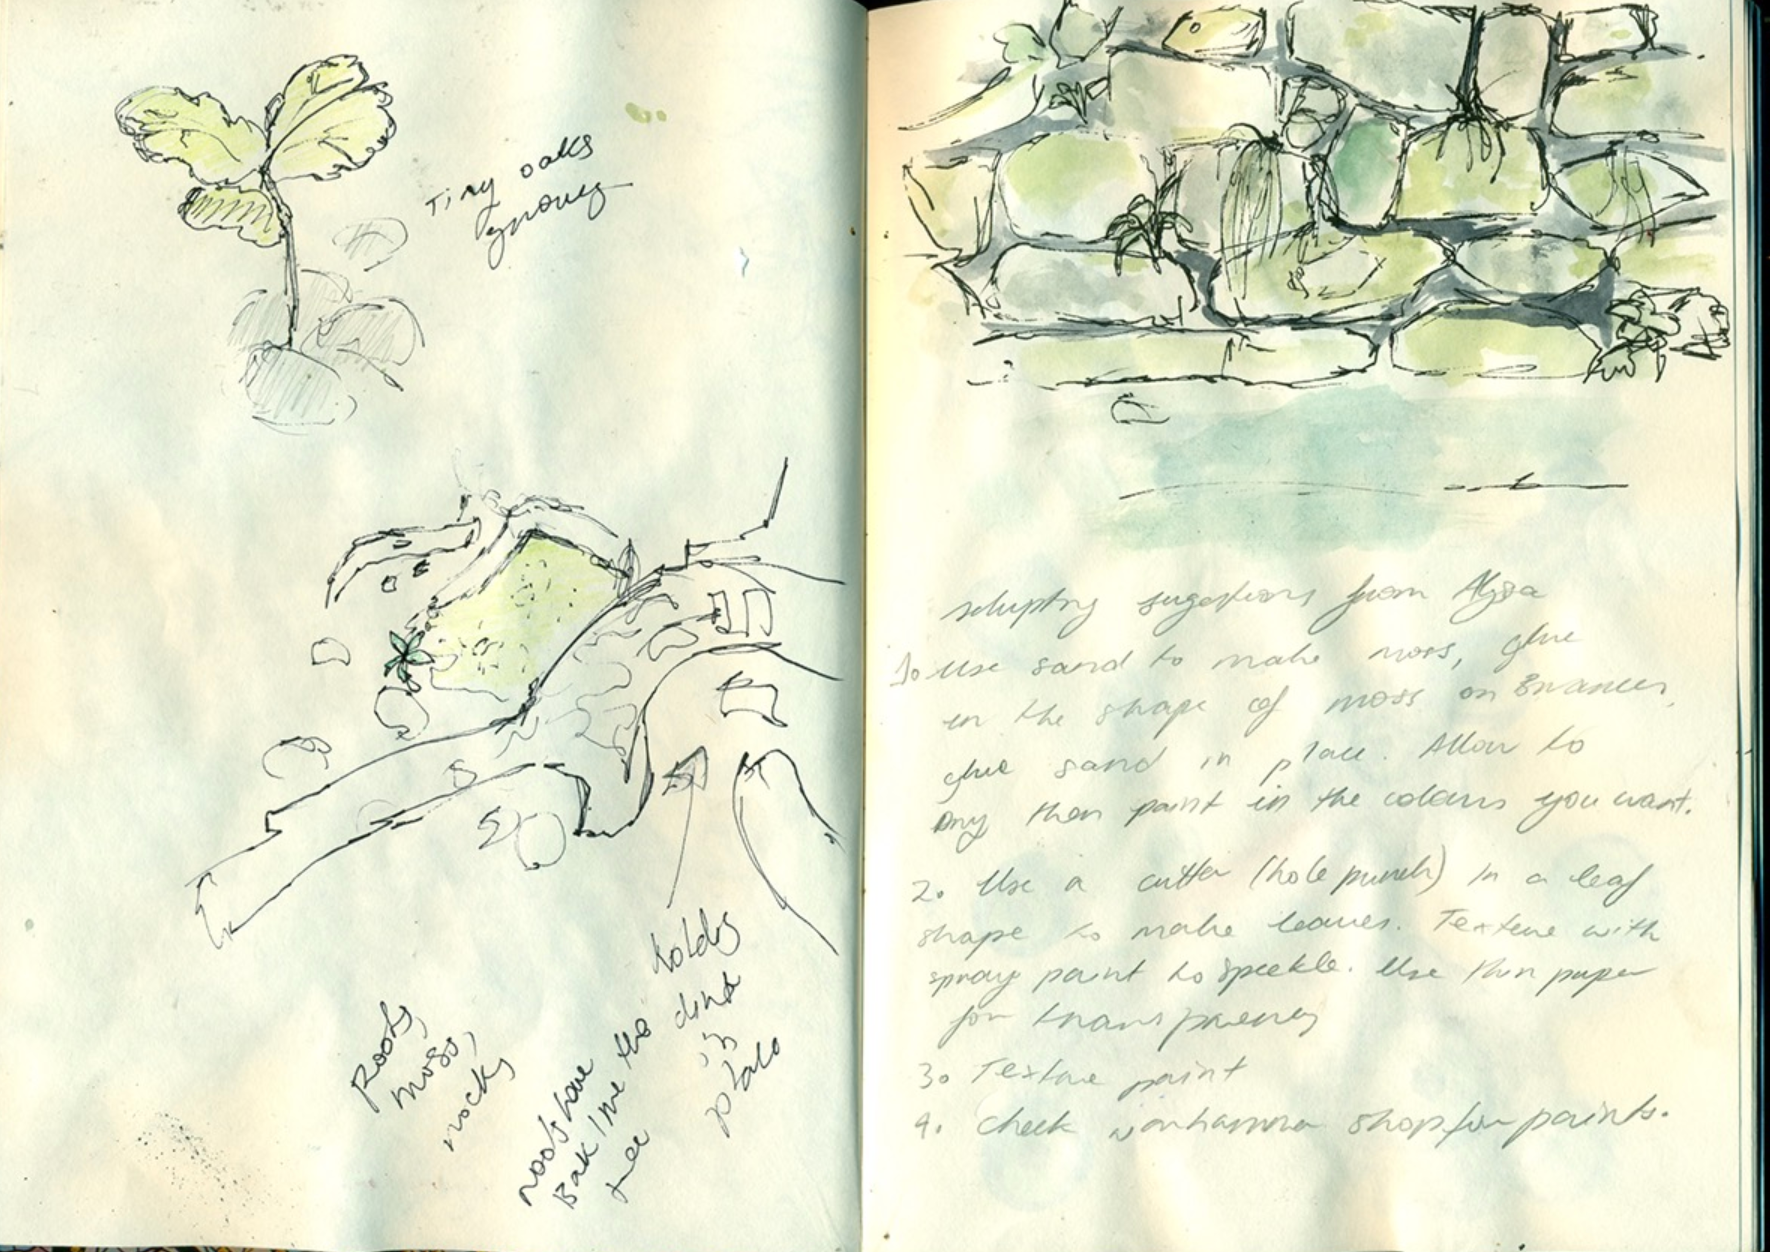 Tiny oaks
growing
Roots,
moss,
rocks
roots have
Bark like the
tree
holding
dirt
in
place
sculpting sugestions from Alysa
1. Use sand to make moss, glue
in the shape of moss on Branches,
glue sand in place. Allow to
Dry then paint in the colours you want.
2. Use a cutter (hole punch) in a leaf
shape to make leaves. Texture with
spray paint to speckle. Use thin paper
for transparency
3. Texture paint
4. Check warhammer shop for paints.